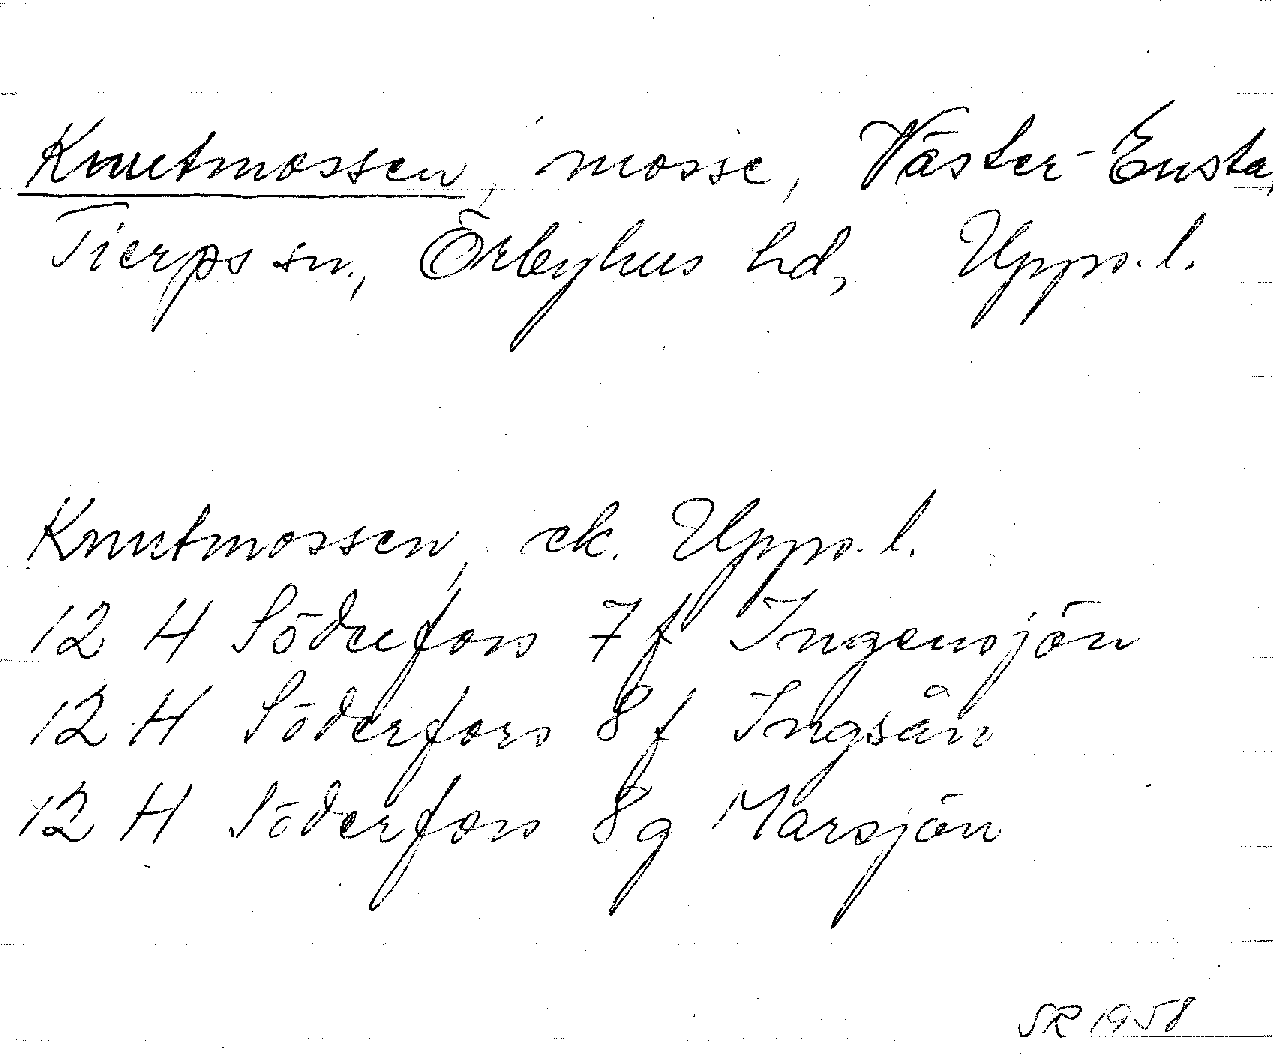 Knutmossen, mosse, Väster-Ensta,
Tierps sn, Örbyhus hd, Upps.l.
Knutmossen, ek. Upps.l.
12 H Söderfors 7f Ingensjön
12 H Söderfors 8f Ingsån
12 H Söderfors 8g Marsjön
SR 1958